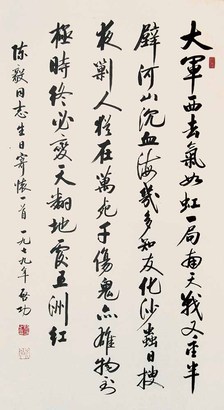 大軍西去氣如虹一局南天戰又重半
壁河山沉血海幾多知友化沙蟲日搜
夜剿人猶在萬死千傷鬼亦雄物到
極時終必變天翻地覆五洲紅
陳毅同志生日寄懷一首 一九七九年 啟功